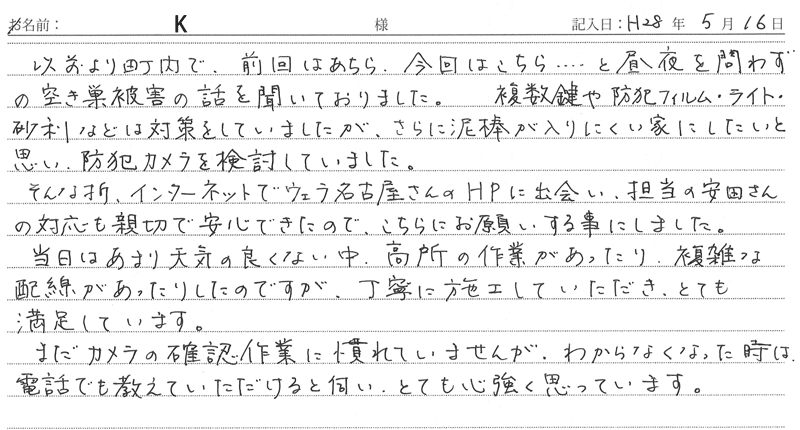 お名前： K 様 記入日：H28年 5月16日
以前より町内で、前回はあちら、今回はこちら‥‥と昼夜を問わず
の空き巣被害の話を聞いておりました。 複数鍵や防犯フィルム・ライト・
砂利などは対策をしていましたが、さらに泥棒が入りにくい家にしたいと
思い、防犯カメラを検討していました。
そんな折、インターネットでウェラ名古屋さんのHPに出会い、担当の安田さん
の対応も親切で安心できたので、こちらにお願いする事にしました。
当日はあまり天気の良くない中、高所の作業があったり、複雑な
配線があったりしたのですが、丁寧に施工していただき、とても
満足しています。
まだカメラの確認作業に慣れていませんが、わからなくなった時は、
電話でも教えていただけると伺い、とても心強く思っています。